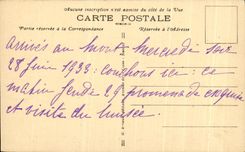 Aucune inscription n'est admise du côté de la Vue
CARTE POSTALE
Partie réservée à la Correspondance Réservée à l'Adresse
arrivés au mont mercredi soir
28 juin 1933: couchons ici: ce
matin jeudi 29 promenade exquise
et visite du musée.